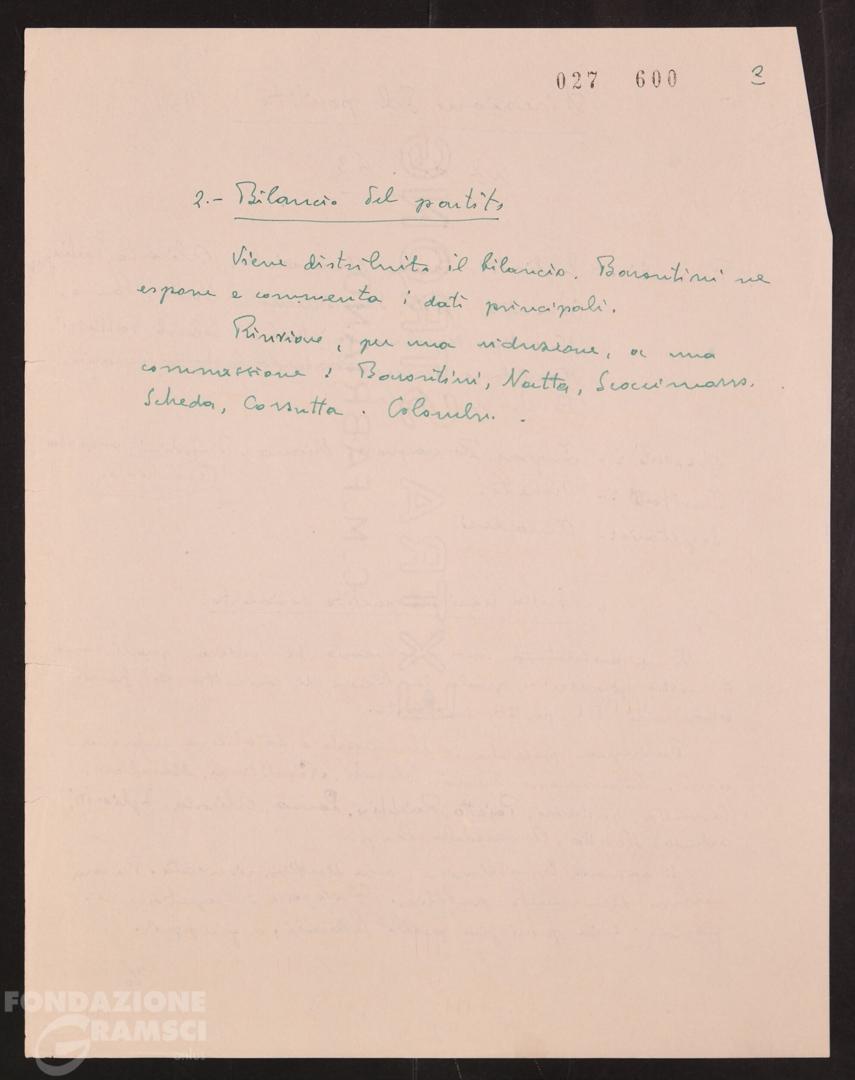 027 600 2
2.- Bilancio del partito
Viene distribuito il bilancio. Barontini ne
espone e commenta i dati principali.
Rinvione, per una riduzione, a una
commissione: Barontini, Natta, Scoccimarro.
Scheda, Cossutta. Colombi.
FONDAZIONE
GRAMSCI
onlus